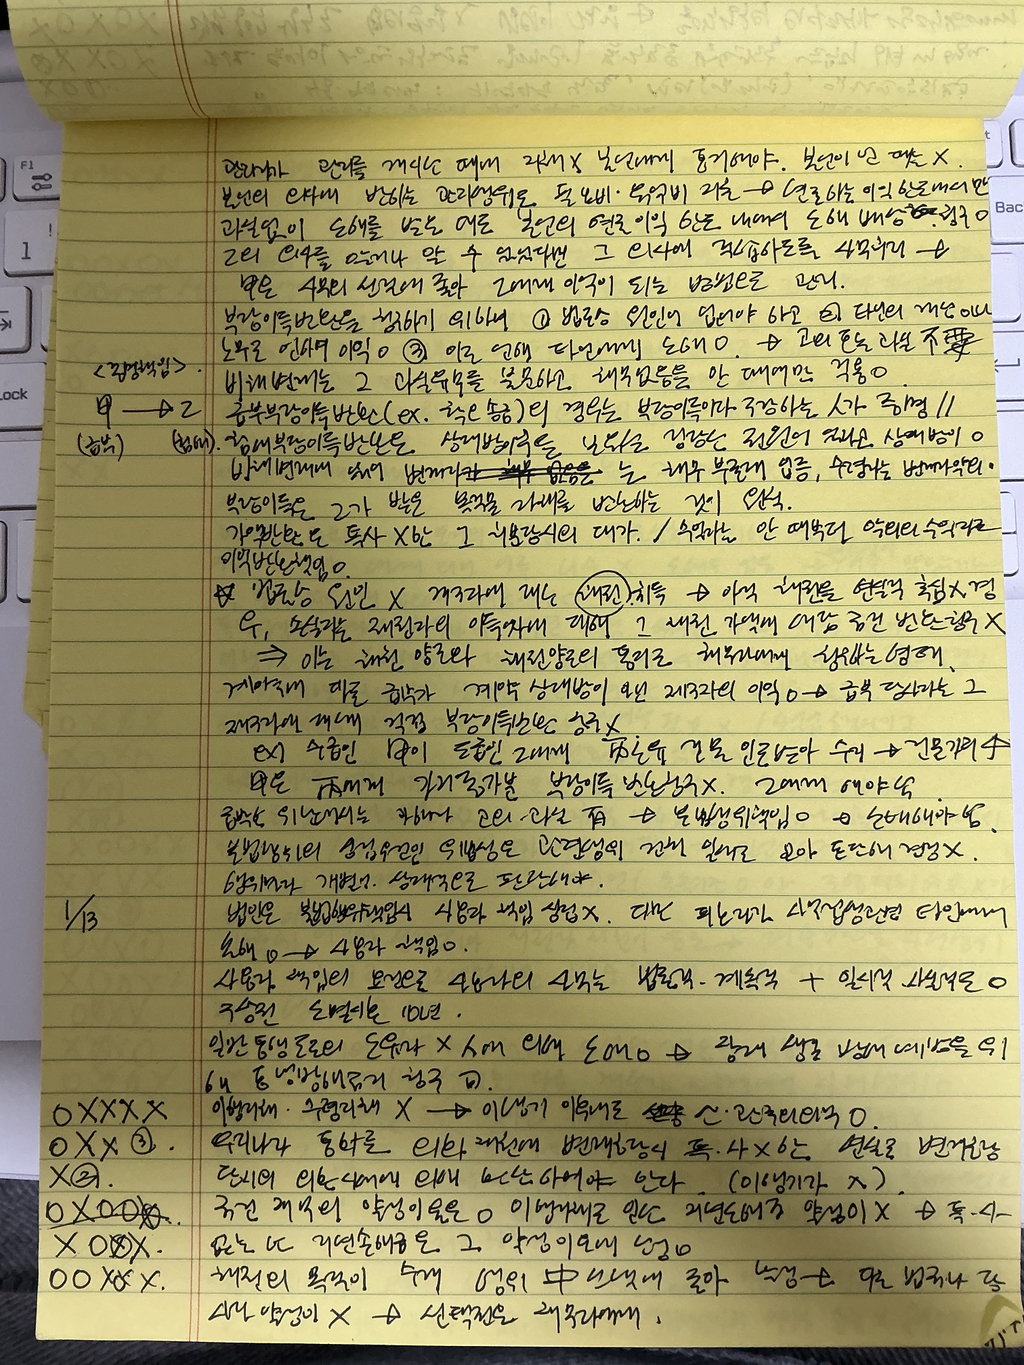 관리자가 관리를 개시한 때에 지체X 본인에게 통지해야. 본인이 안 때는 X.
본인의 의사에 반하는 관리행위로 필요비·유익비 지출 → 현존하는 이익 한도내에서만
과실없이 손해를 받은 때도 본인의 현존이익 한도 내에서 손해 배상 청구 O
그의 의사를 알거나 알 수 있었다면 그 의사에 적합하도록 사무관리 →
甲은 사무의 성질에 좇아 乙에게 이익이 되는 방법으로 관리.
부당이득반환을 청구하기 위하여 ① 법률상 원인이 없어야 하고 ② 타인의 재산 or
노무로 인하여 이익 O ③ 이로 인해 타인에게 손해 O. → 고의 또는 과실 不要
<입증책임>.
비채변제는 그 과실유무를 불문하고 채무없음을 안 때에만 적용 O.
甲 → 乙 급부부당이득반환(ex. 착오송금)의 경우는 부당이득이라 주장하는 사람가 증명 //
(급부) (침해). 침해부당이득반환은 상대방이 이익을 보유할 정당한 권원이 있다고 상대방이 O
비채변제에 있어 변제자는 채무 부존재 입증, 수령자는 변제자 악의.
부당이득은 그가 받은 목적물 자체를 반환하는 것이 원칙.
가액반환도 특사 X한 그 처분당시의 대가. / 수익자는 안 때부터 악의의 수익자로
이익반환책임 O.
☆ 법률상 원인 X 제3자에 대한 채권 취득 → 아직 채권을 현실적 추심X 경
우, 손실자는 채권자의 이득자에 대해 그 채권 가액에 해당 금전 반환청구 X
⇒ 이는 채권 양도와 채권양도의 통지로 채무자에게 청구하는 형태.
계약에 따른 급부가 계약 상대방이 아닌 제3자의 이익 O → 급부 당사자는 그
제3자에 대해 직접 부당이득반환 청구 X
ex) 수급인 甲이 도급인 乙에게 丙소유 건물 인도받아 수리 → 건물가치 ↑
甲은 丙에게 가치증가분 부당이득 반환청구 X. 乙에게 해야 함
고의·과실 有 → 불법행위책임 O → 손해배상
불법행위의 성립요건인 위법성은 관련행위 전체 일체로 보아 판단해 결정 X.
행위마다 개별적·상대적으로 판단해야.
1/13 법인은 불법행위책임시 사용자 책임 성립 X. 다만 피용자가 사무집행관련 타인에게
손해 O → 사용자 책임 O.
사용자 책임의 요건으로 사용자의 사무는 법률적·계속적 + 일시적 사실적도 O
구상권 소멸시효 10년.
일반 통행 도로의 소유자 X 人에 의해 손해 O → 장래 생길 방해 예방을 위
해 통행방해금지 청구 可.
OXXXX 이행지체·수령지체 X → 이행기 이후에도 선·관주의의무 O.
OXX③. 우리나라 통화를 외화 채권에 변제충당시 특·사 X 한 현실로 변제충당
X②. 당시의 외환시세에 의해 환산하여야 한다. (이행기가 X).
OXOOX. 금전 채무의 약정이율은 O 이행지체로 인한 지연손해금 약정이 X → 특·사·
XOXX. 없는 한 지연손해금은 그 약정이율에 산정 O
OOXXX. 채권의 목적이 수개 행위 中 선택에 좇아 확정 → 다른 법규나 당
사자 약정이 X → 선택권은 채무자에게.